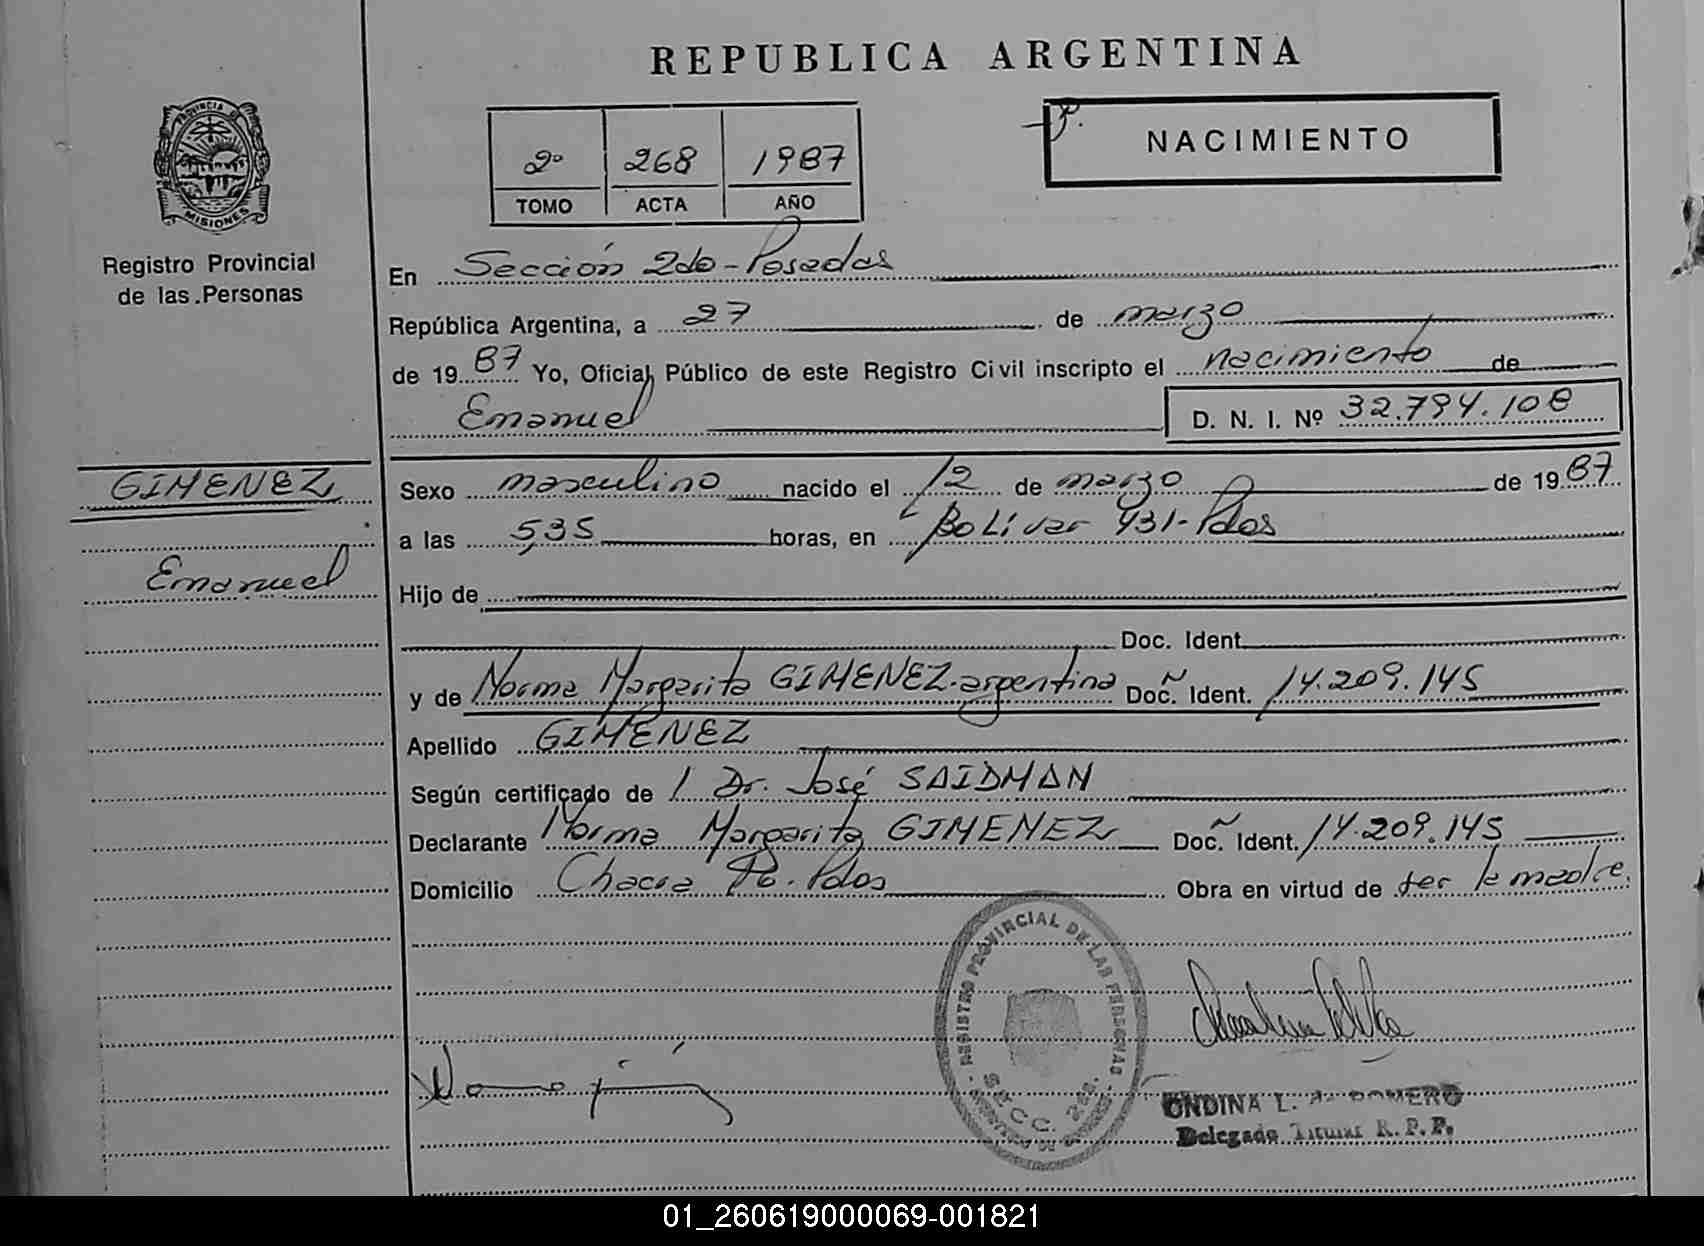 REPUBLICA ARGENTINA
PROVINCIA DE
MISIONES
Registro Provincial
de las Personas
2º 268 1987
TOMO ACTA AÑO
NACIMIENTO
En Sección 2do - Posadas
República Argentina, a 27 de marzo
de 1987 Yo, Oficial Público de este Registro Civil inscripto el nacimiento de
Emanuel D. N. I. Nº 32.794.108
GIMENEZ
Emanuel
Sexo masculino nacido el 12 de marzo de 1987
a las 5,35 horas, en Bolivar 431 - Pdas
Hijo de
Doc. Ident.
y de Norma Margarita GIMENEZ - argentina Doc. Ident. 14.209.145
Apellido GIMENEZ
Según certificado de l Dr. José SAIDMAN
Declarante Norma Margarita GIMENEZ Doc. Ident. 14.209.145
Domicilio Chacra - Pdas Obra en virtud de ser la madre.
REGISTRO PROVINCIAL DE LAS PERSONAS
SECC. 2da.
ONDINA L. ROMERO
Delegado Titular R. P. P.
01_260619000069-001821